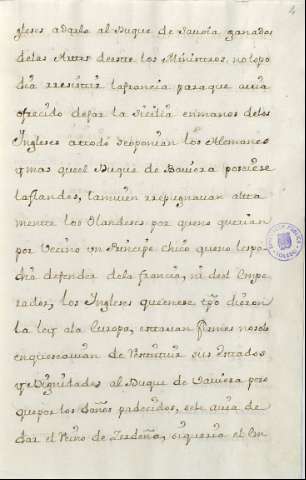 4
gleses adarla al Duque de Saboia ganados
delas Artes de este los Ministros, no lo po
dia rresistir lafrancia para que avia
ofrecido dejar la Sicilia en manos delos
Ingleses atodo seoponian los Alemanes
y mas que el Duque de Baviera posciese
laflandes, tamvien rrepugnavan alta
mente los Olandeses por que no querian
por Vecino un Principe chico que no les po
dia defender dela francia, ni del Empe
rador, los Ingleses que en ese tpō dieron
la ley ala Europa, estavan firmes no solo
en que se avian de Restituir sus estados
y Dignidades al Duque de Baviera pero
que por los daños padecidos, se le avia de
dar el Reino de Zerdeña, si queria el Em